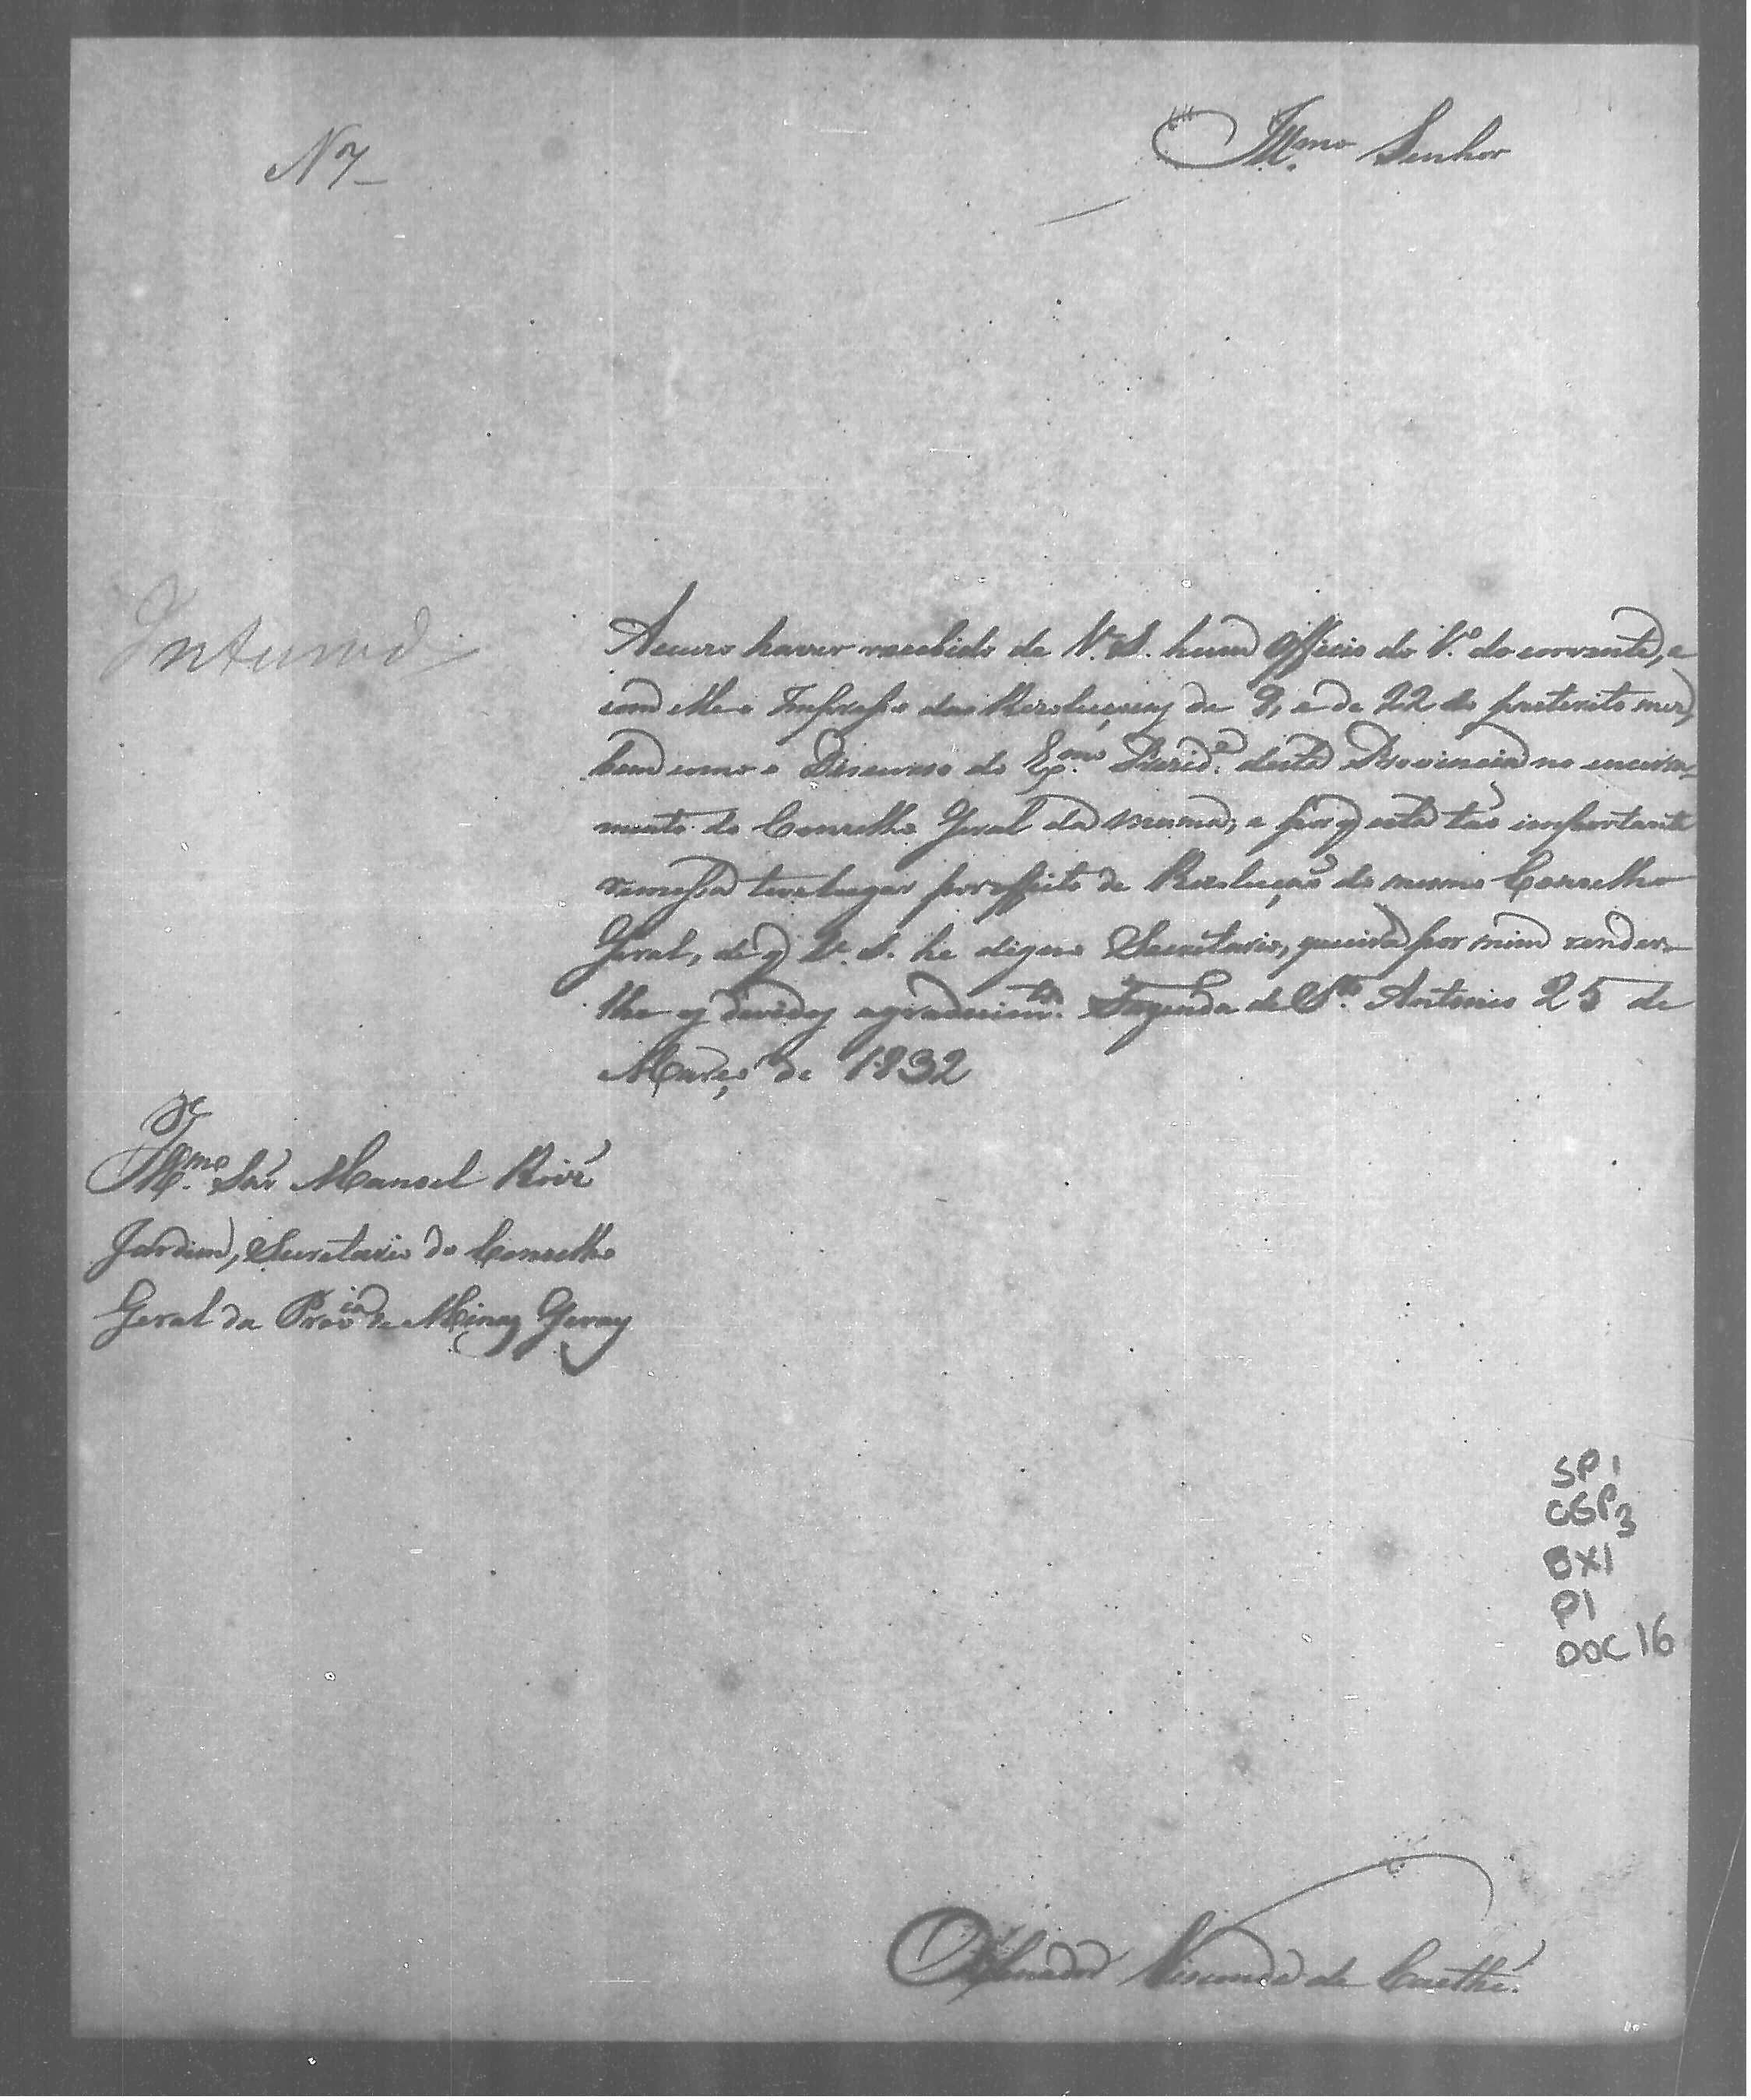 N 7
Illmo Senhor
Inteirado
Accuso haver recebido de V. S. hum Officio do 1.º do corrente, e
com elle o Impresso das Resoluçoens de 9, e de 22 do preterito mez,
bem como o Discurso do Exmo Prezid.e desta Provincia no encerra-
mento do Conselho Geral da mesma, e porq esta tão importante
remessa teve lugar por effeito de Rezolução do mesmo Conselho
Geral, de q V. S. he digno Secretario, queira por mim render-
lhe os devidos agradecim.tos Fazenda de S.to Antonio 25 de
Março de 1832
Illmo Snr Manoel
Jardim, Secretario do Conselho
Geral da Prov.ia de Minas Geraes
SP 1
CGP3
BX1
P1
DOC 16
O Senador Visconde de Caethé.